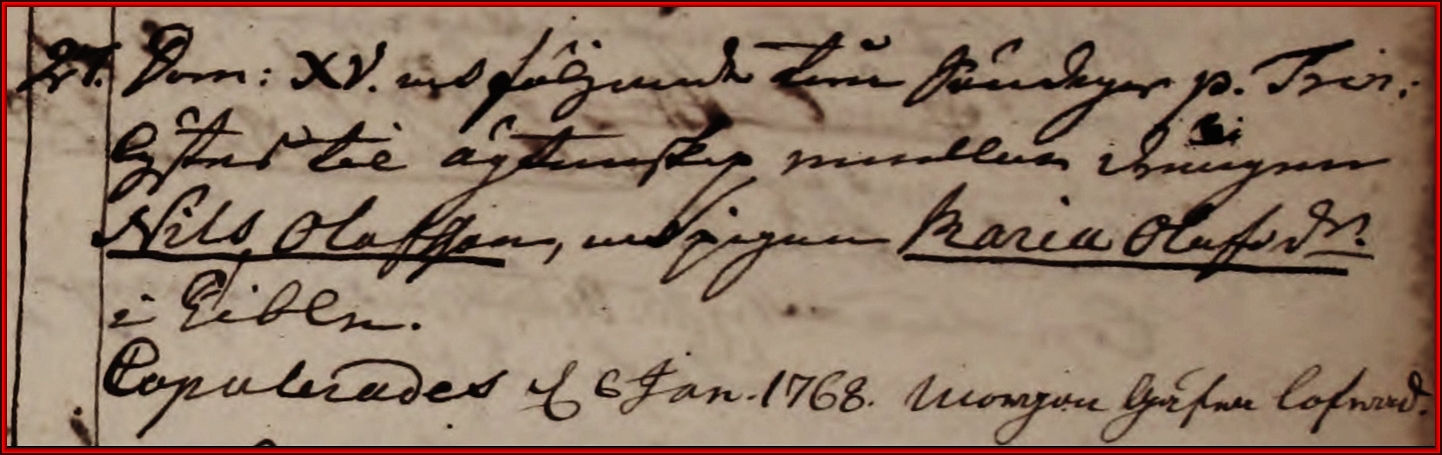 27. Dom: XV. och följande twå söndagar p. Trin:
lystes til ägtenskap emellan drängen
Nils Olofsson, och pigan Maria Olufsdr.
i Giblen.
Copulerades d. 6 Jan. 1768. Morgon gåfwa lofwad.